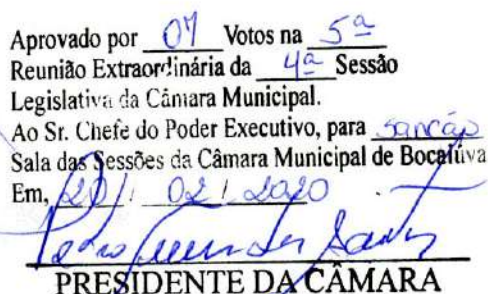 Aprovado por 07 Votos na 5ª
Reunião Extraordinária da 4ª Sessão
Legislativa da Câmara Municipal.
Ao Sr. Chefe do Poder Executivo, para sanção
Sala das Sessões da Câmara Municipal de Bocaiúva
Em, 20 / 02 / 2020
PRESIDENTE DA CÂMARA